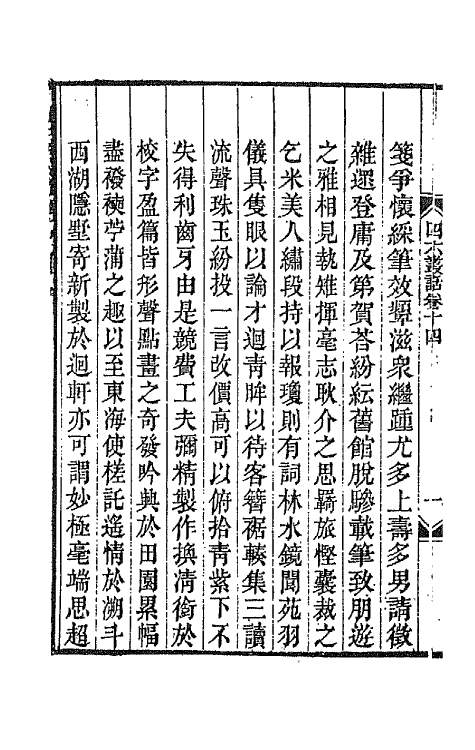 四六叢話卷十四
一
箋爭懷綵筆效顰滋衆繼踵尤多上壽多男請徵
雜遝登庸及第賀荅紛紜舊館脫驂載筆致朋遊
之雅相見執雉揮毫志耿介之思羇旅慳囊裁之
乞米美人繡段持以報瓊則有詞林水鏡閬苑羽
儀具隻眼以論才迴靑眸以待客簪裾輳集三讀
流聲珠玉紛投一言改價高可以俯拾靑紫下不
失得利齒牙由是競費工夫彌精製作換淸銜於
校字盈篇皆形聲點畫之奇發吟興於田園累幅
盡襏襫苧蒲之趣以至東海使槎託遙情於溯斗
西湖隱墅寄新製於迴軒亦可謂妙極毫端思超